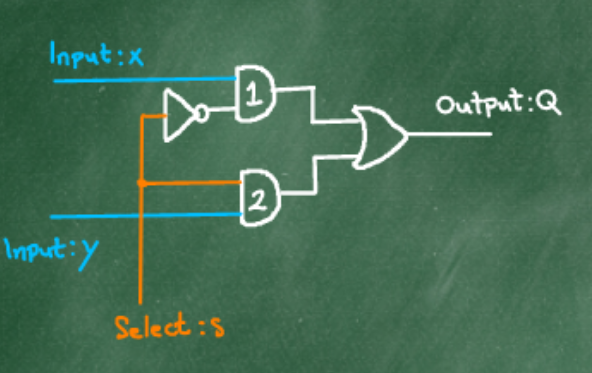 Input:x
1
Output:Q
2
Input:y
Select:s